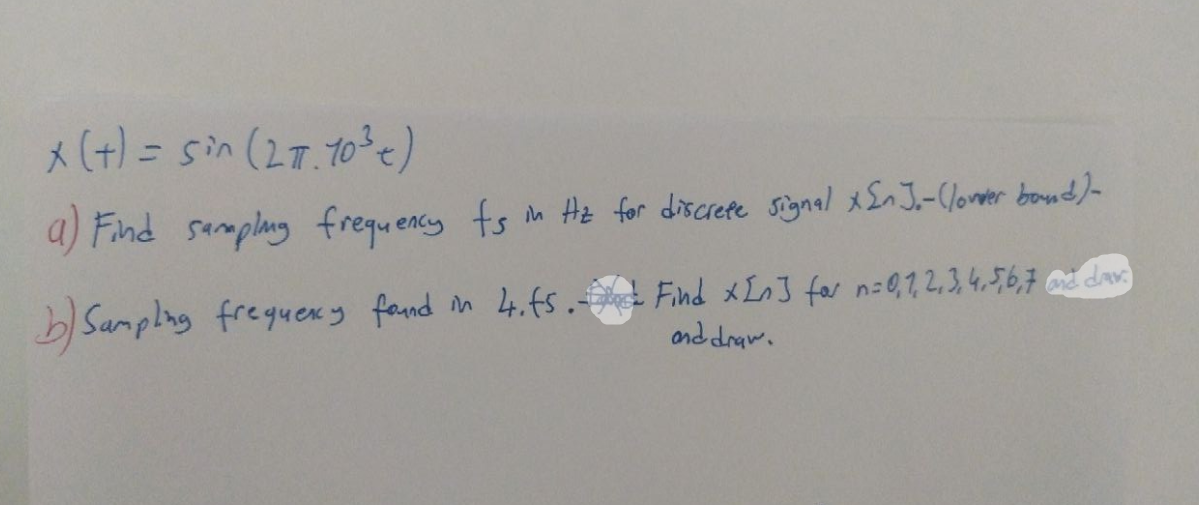 x(t) = sin(2π.10³t)
a) Find sampling frequency fs in Hz for discrete signal x[n].-(lower bound)-
b) Sampling frequency found in 4.fs. Find x[n] for n=0,1,2,3,4,5,6,7 and draw.
and draw.